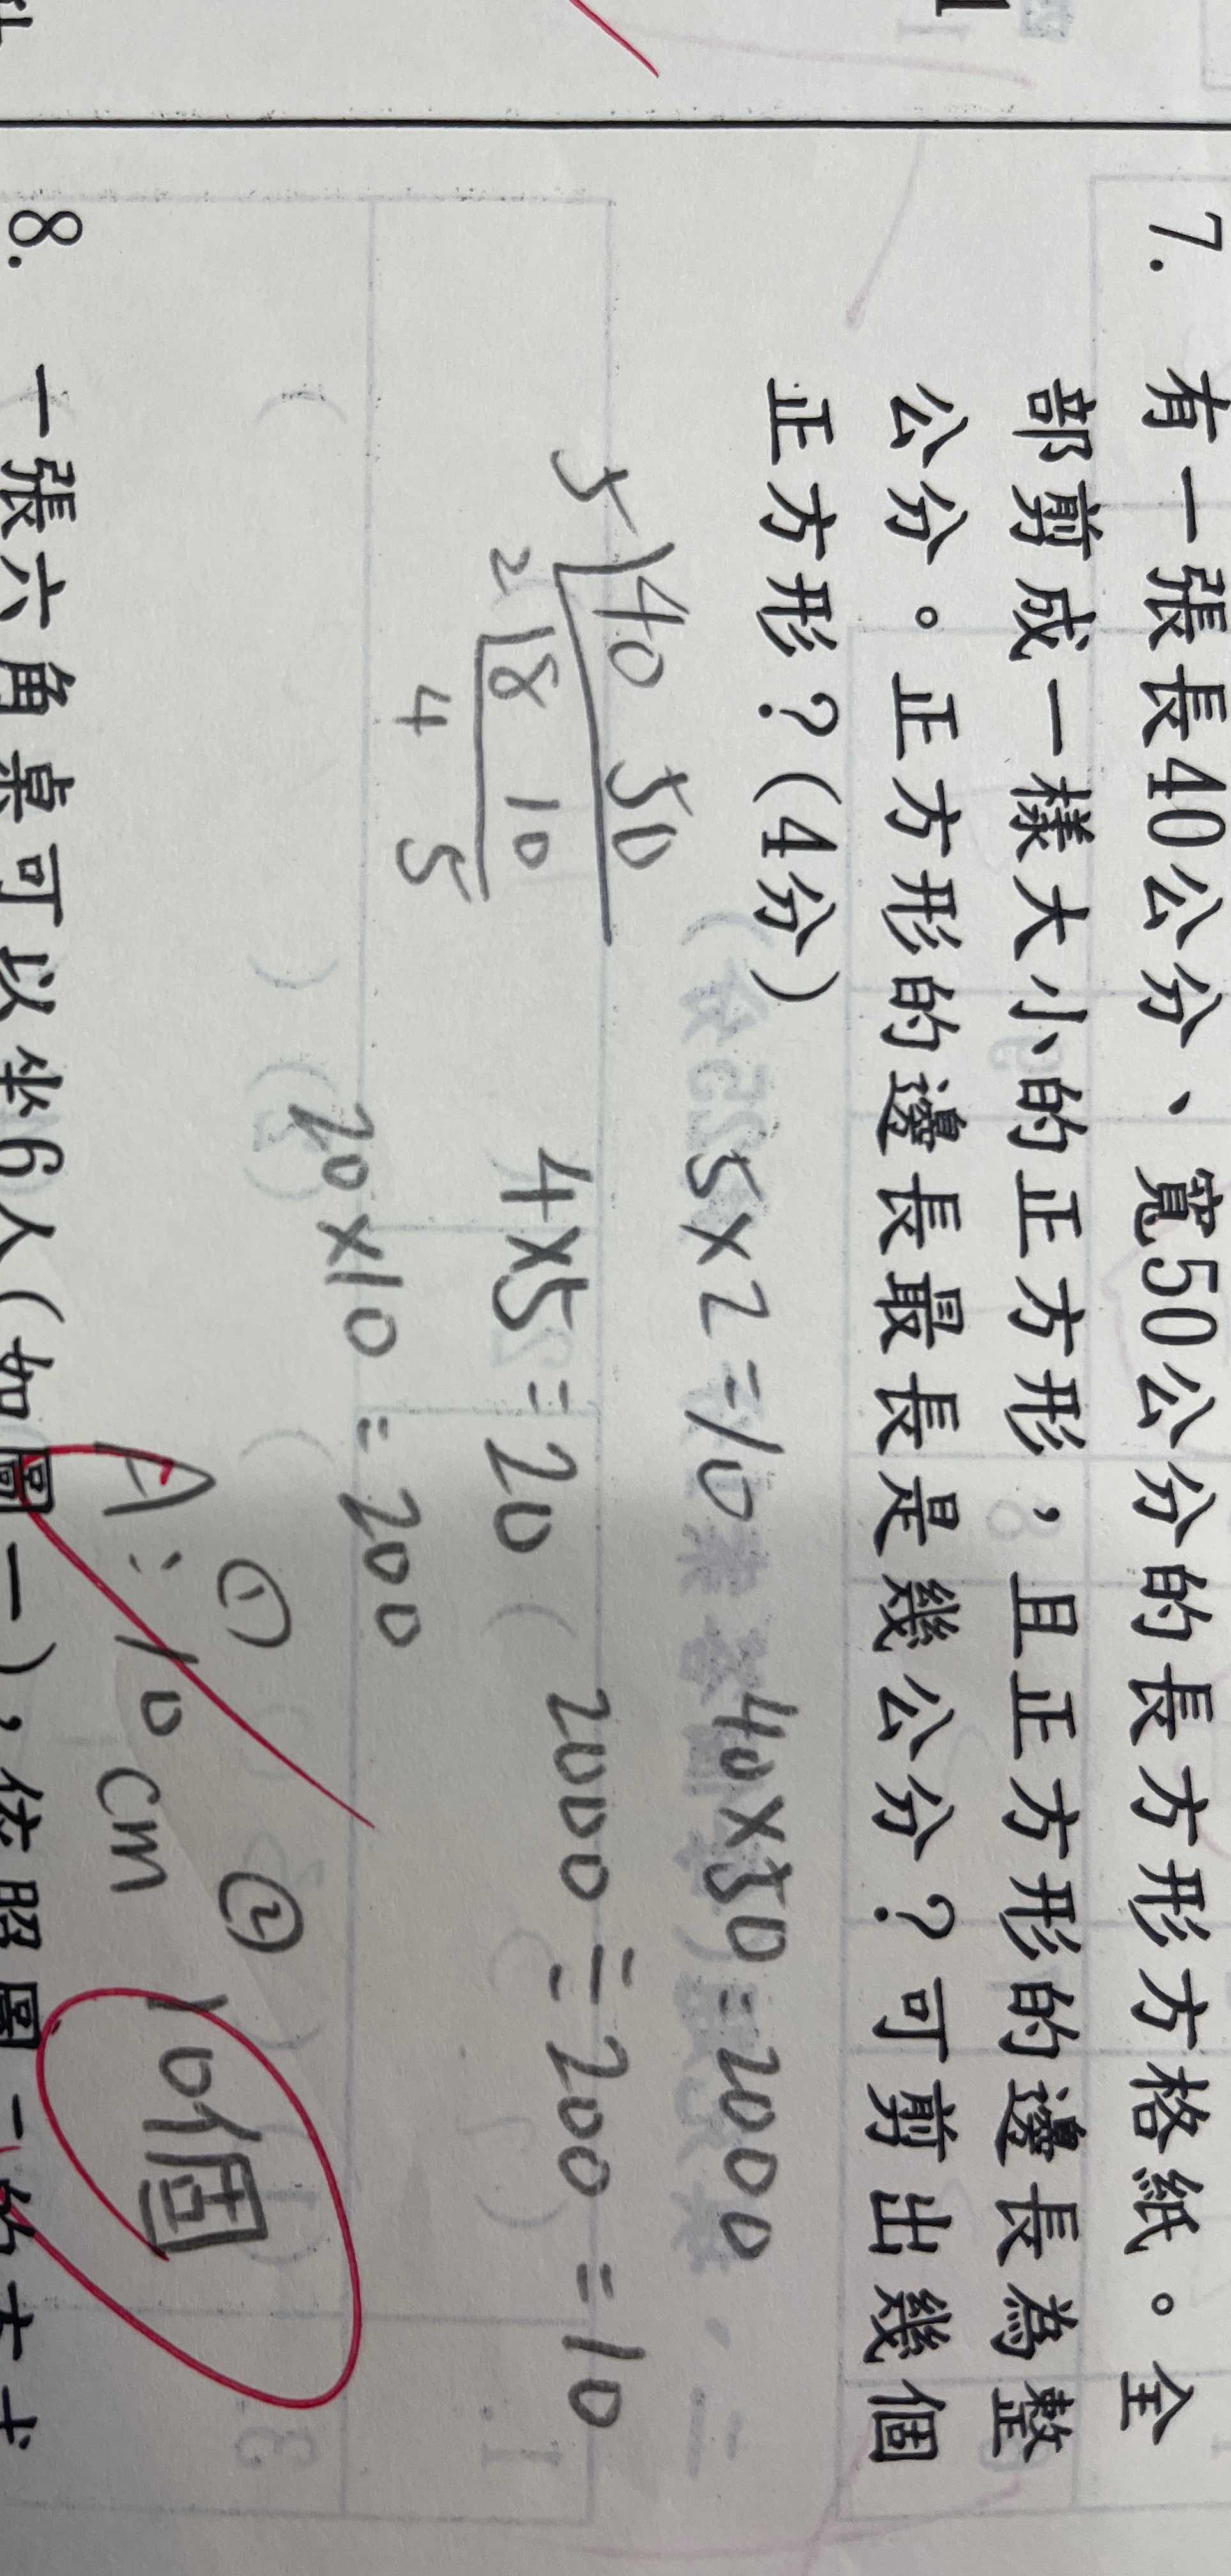 7. 有一張長40公分、寬50公分的長方形方格紙。全
部剪成一樣大小的正方形，且正方形的邊長為整
公分。正方形的邊長最長是幾公分？可剪出幾個
正方形？(4分)
5×2=10
40×50=2000
5 40 50
2 8 10
4 5
4×5=20
2000÷200=10
20×10=200
① ②
A:10cm 10個
8. 一張六角桌可以坐6人(如圖一)，依照圖一的方式